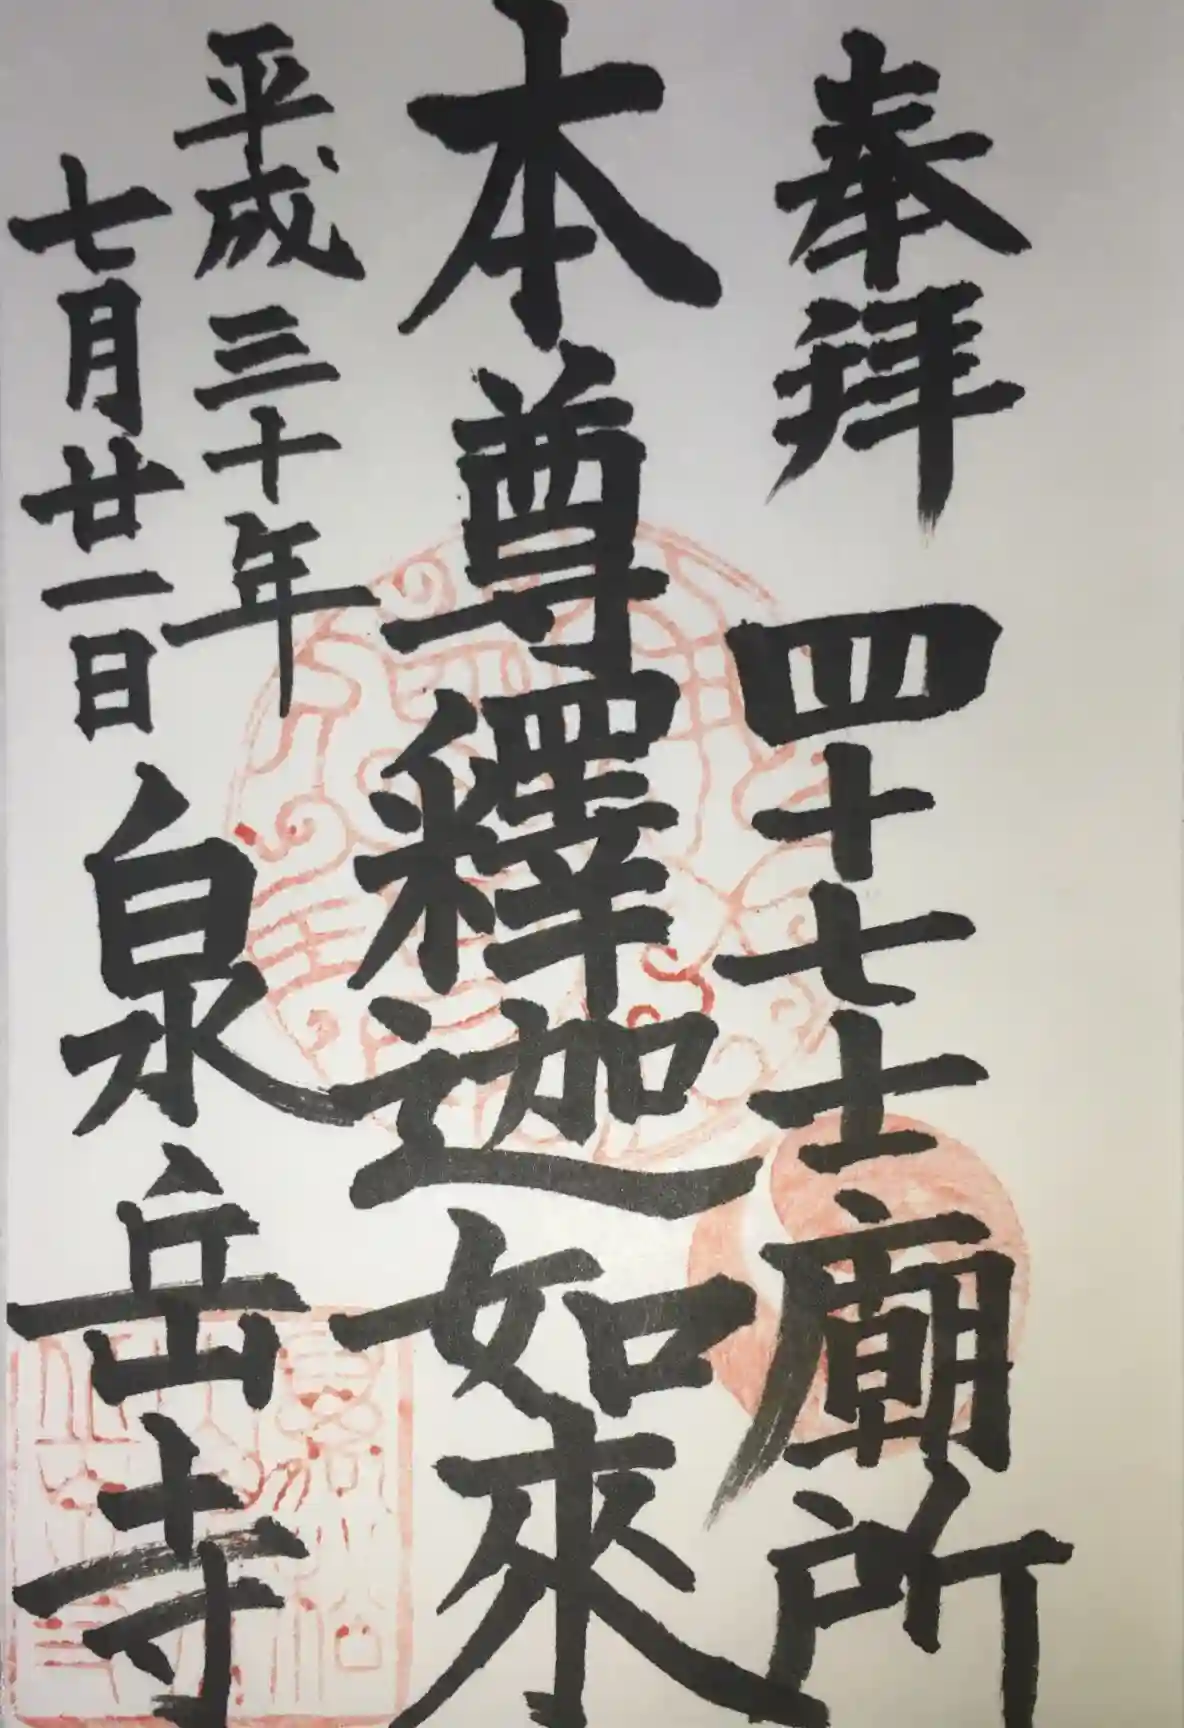 奉拝 四十七士廟所
本尊釋迦如來
平成三十年
七月廿一日
泉岳寺